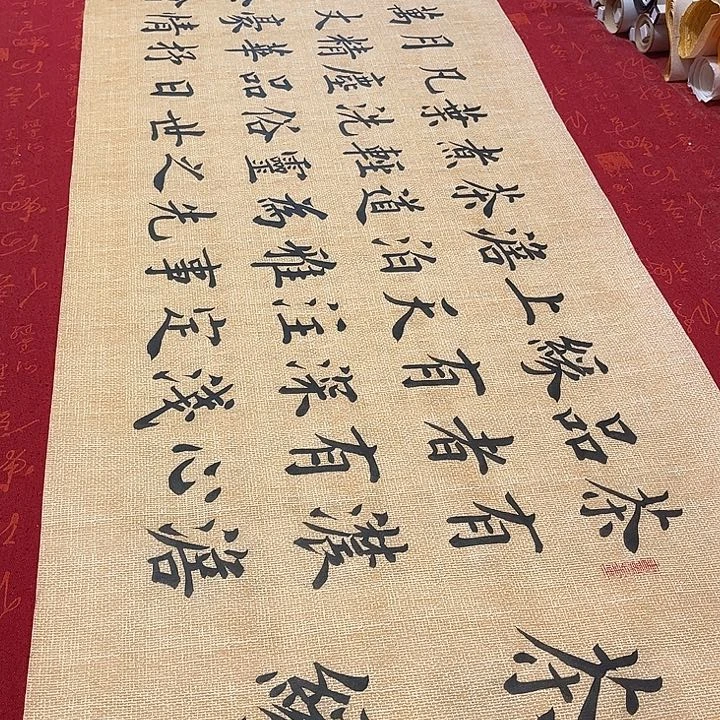 茶緣
茶有濃澹
品者有心
緣有深淺
上天注定
澹泊雅事
茶道為先
煮輕靈之
葉洗俗世
凡塵品日
月精華抒
萬丈豪情